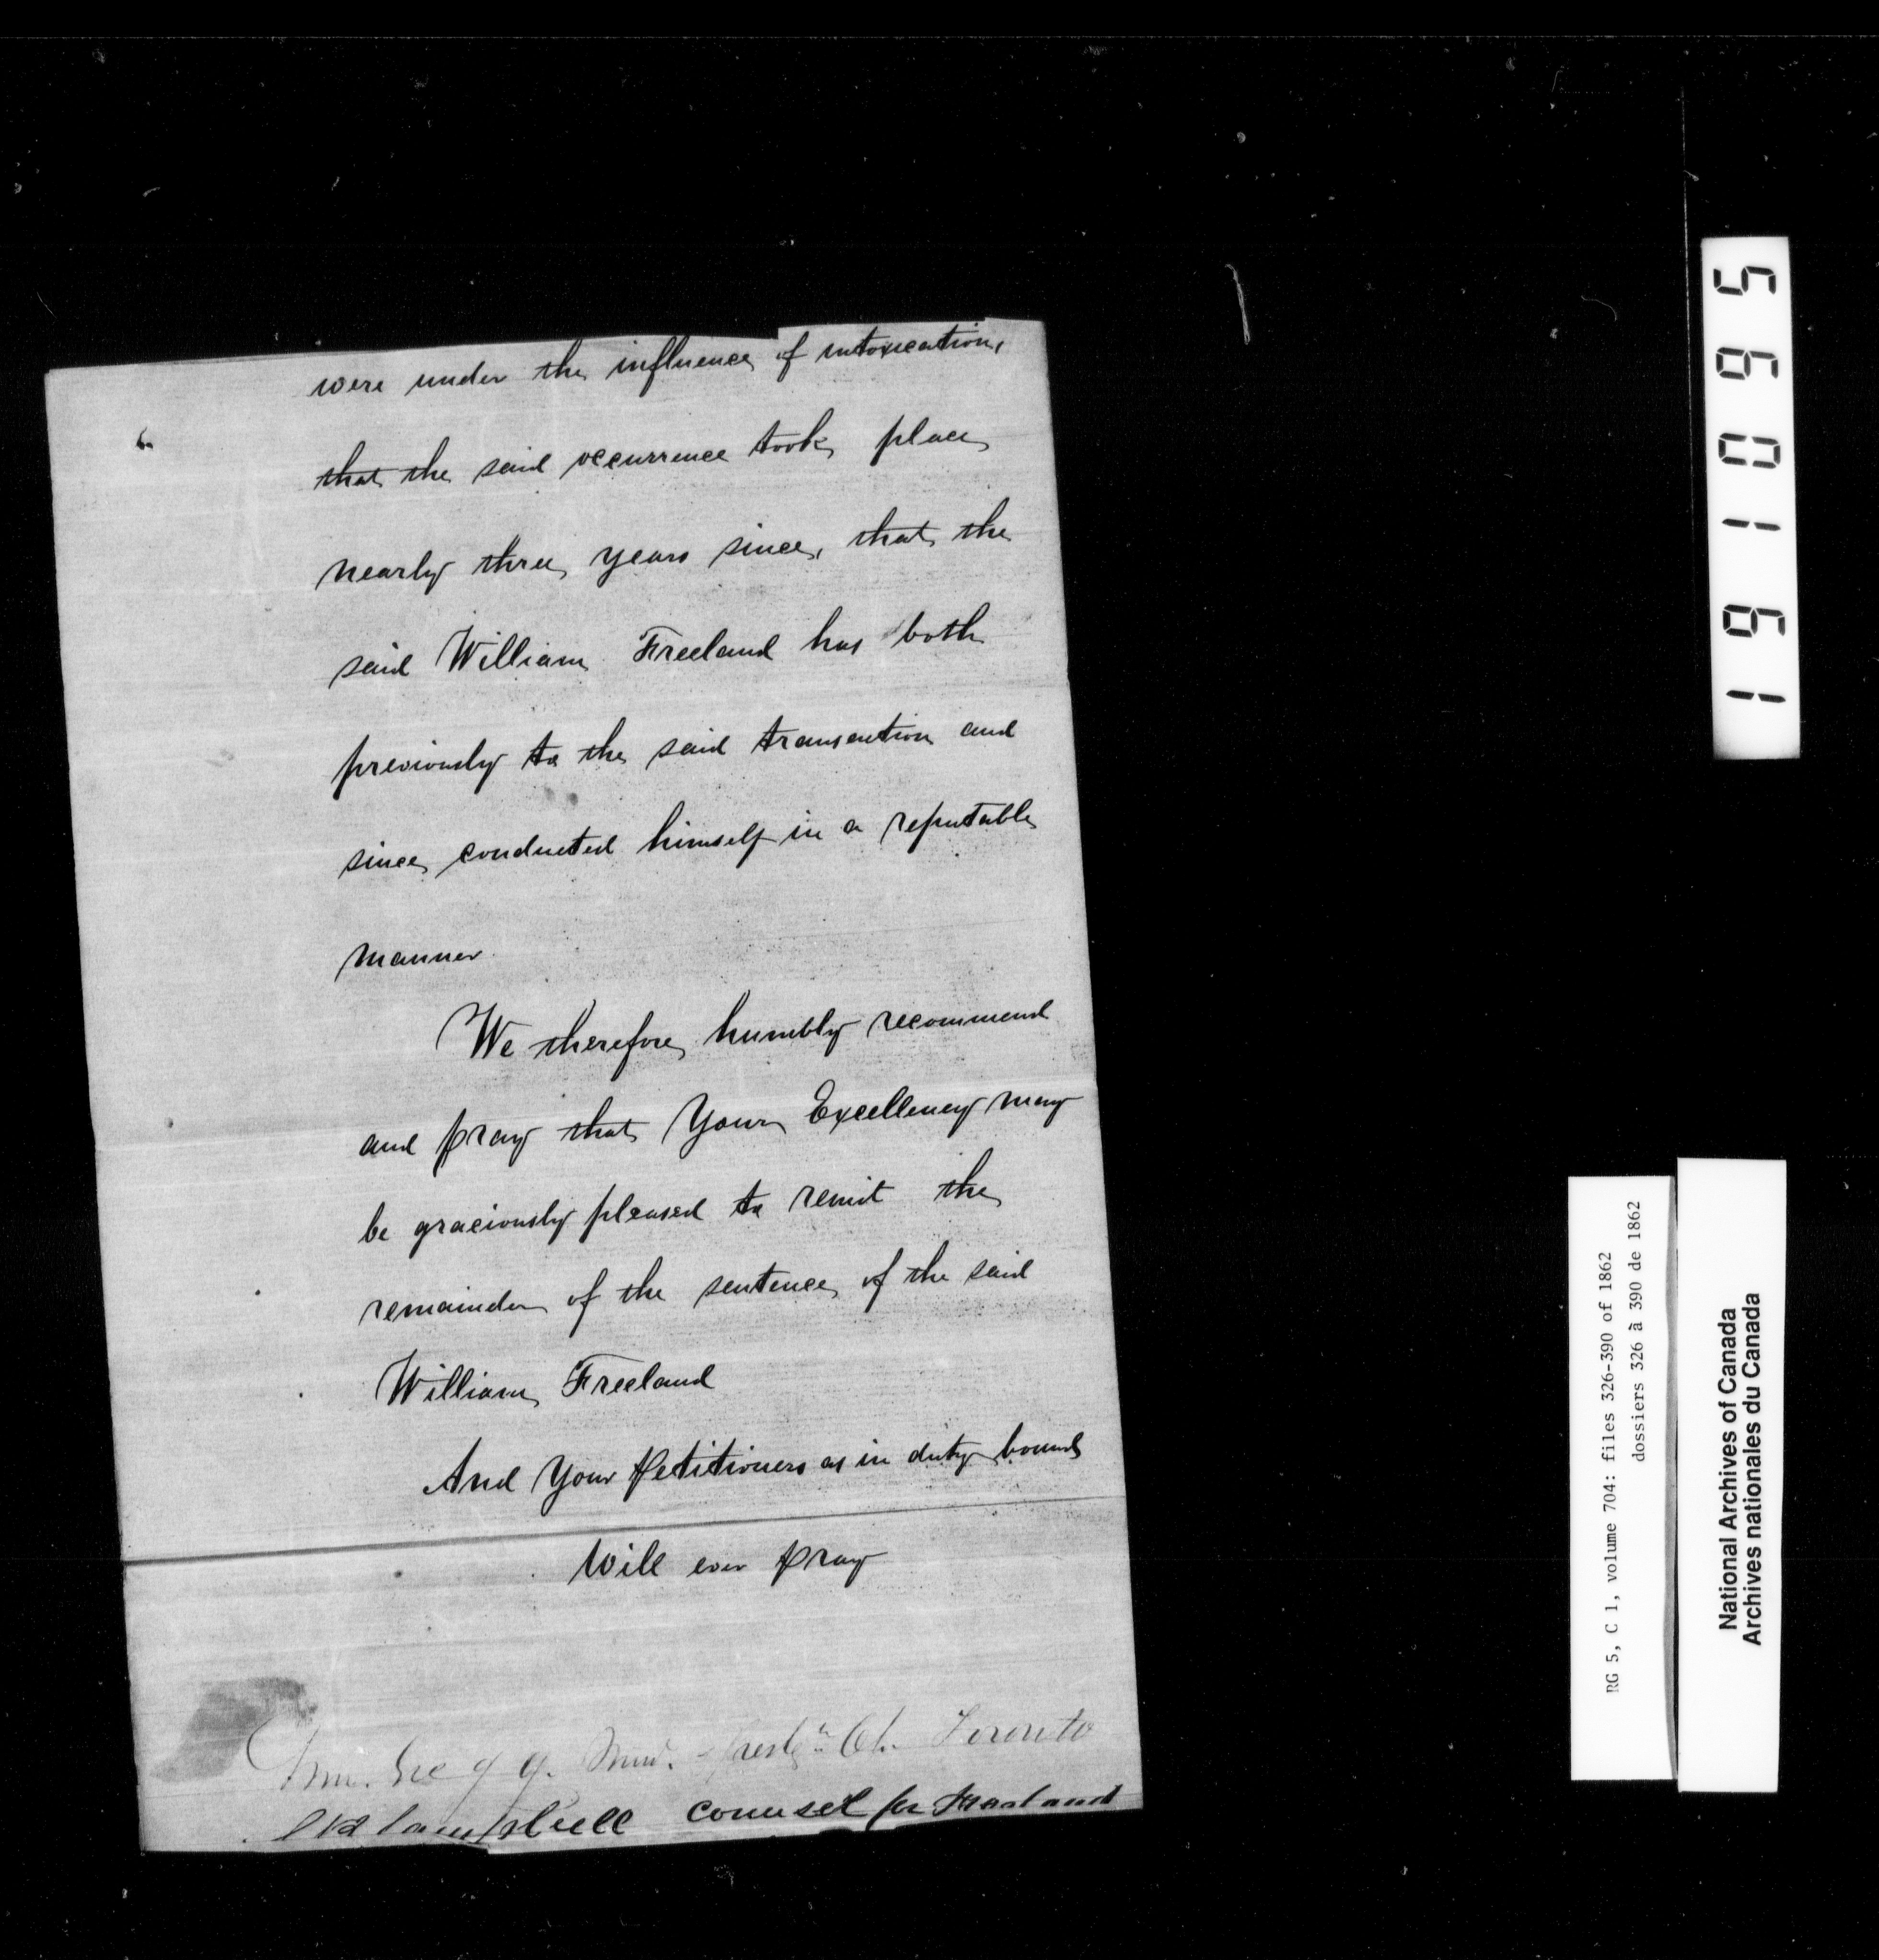 were under the influence of intoxication,
that the said occurrence took place
nearly three years since, that the
said William Freeland has both
previously to the said transaction and
since conducted himself in a reputable
manner
We therefore humbly recommend
and pray that Your Excellency may
be graciously pleased to remit the
remainder of the sentence of the said
William Freeland
And Your Petitioners as in duty bound
Will ever pray
Wm. Gregg. Min. Ch. Toronto
Campbell counsel for Freeland
191095
RG 5, C 1, volume 704: files 326-390 of 1862
dossiers 326 à 390 de 1862
National Archives of Canada
Archives nationales du Canada